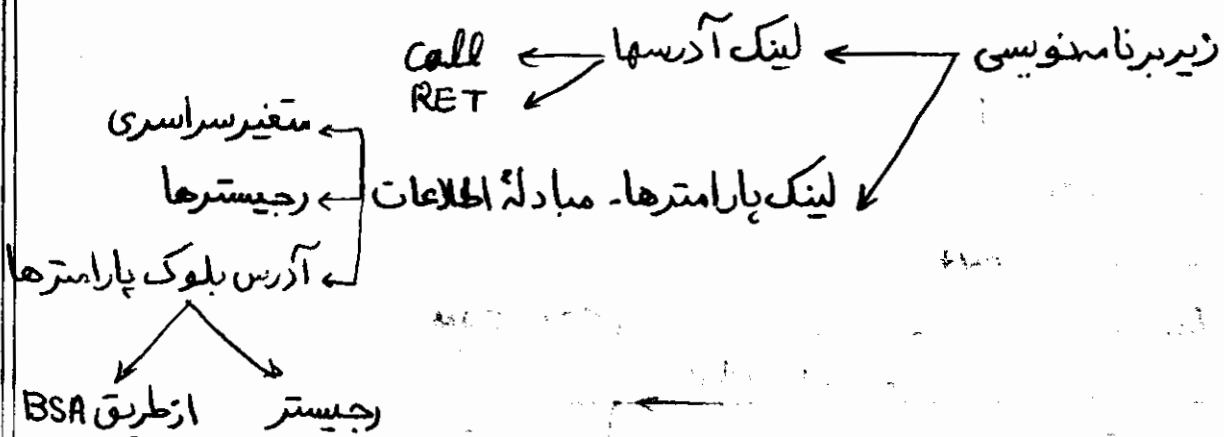 زیربرنامه‌نویسی
لینک آدرسها
call
RET
لینک پارامترها - مبادلهٔ اطلاعات
متغیر سراسری
رجیسترها
آدرس بلوک پارامترها
رجیستر
از طریق BSA